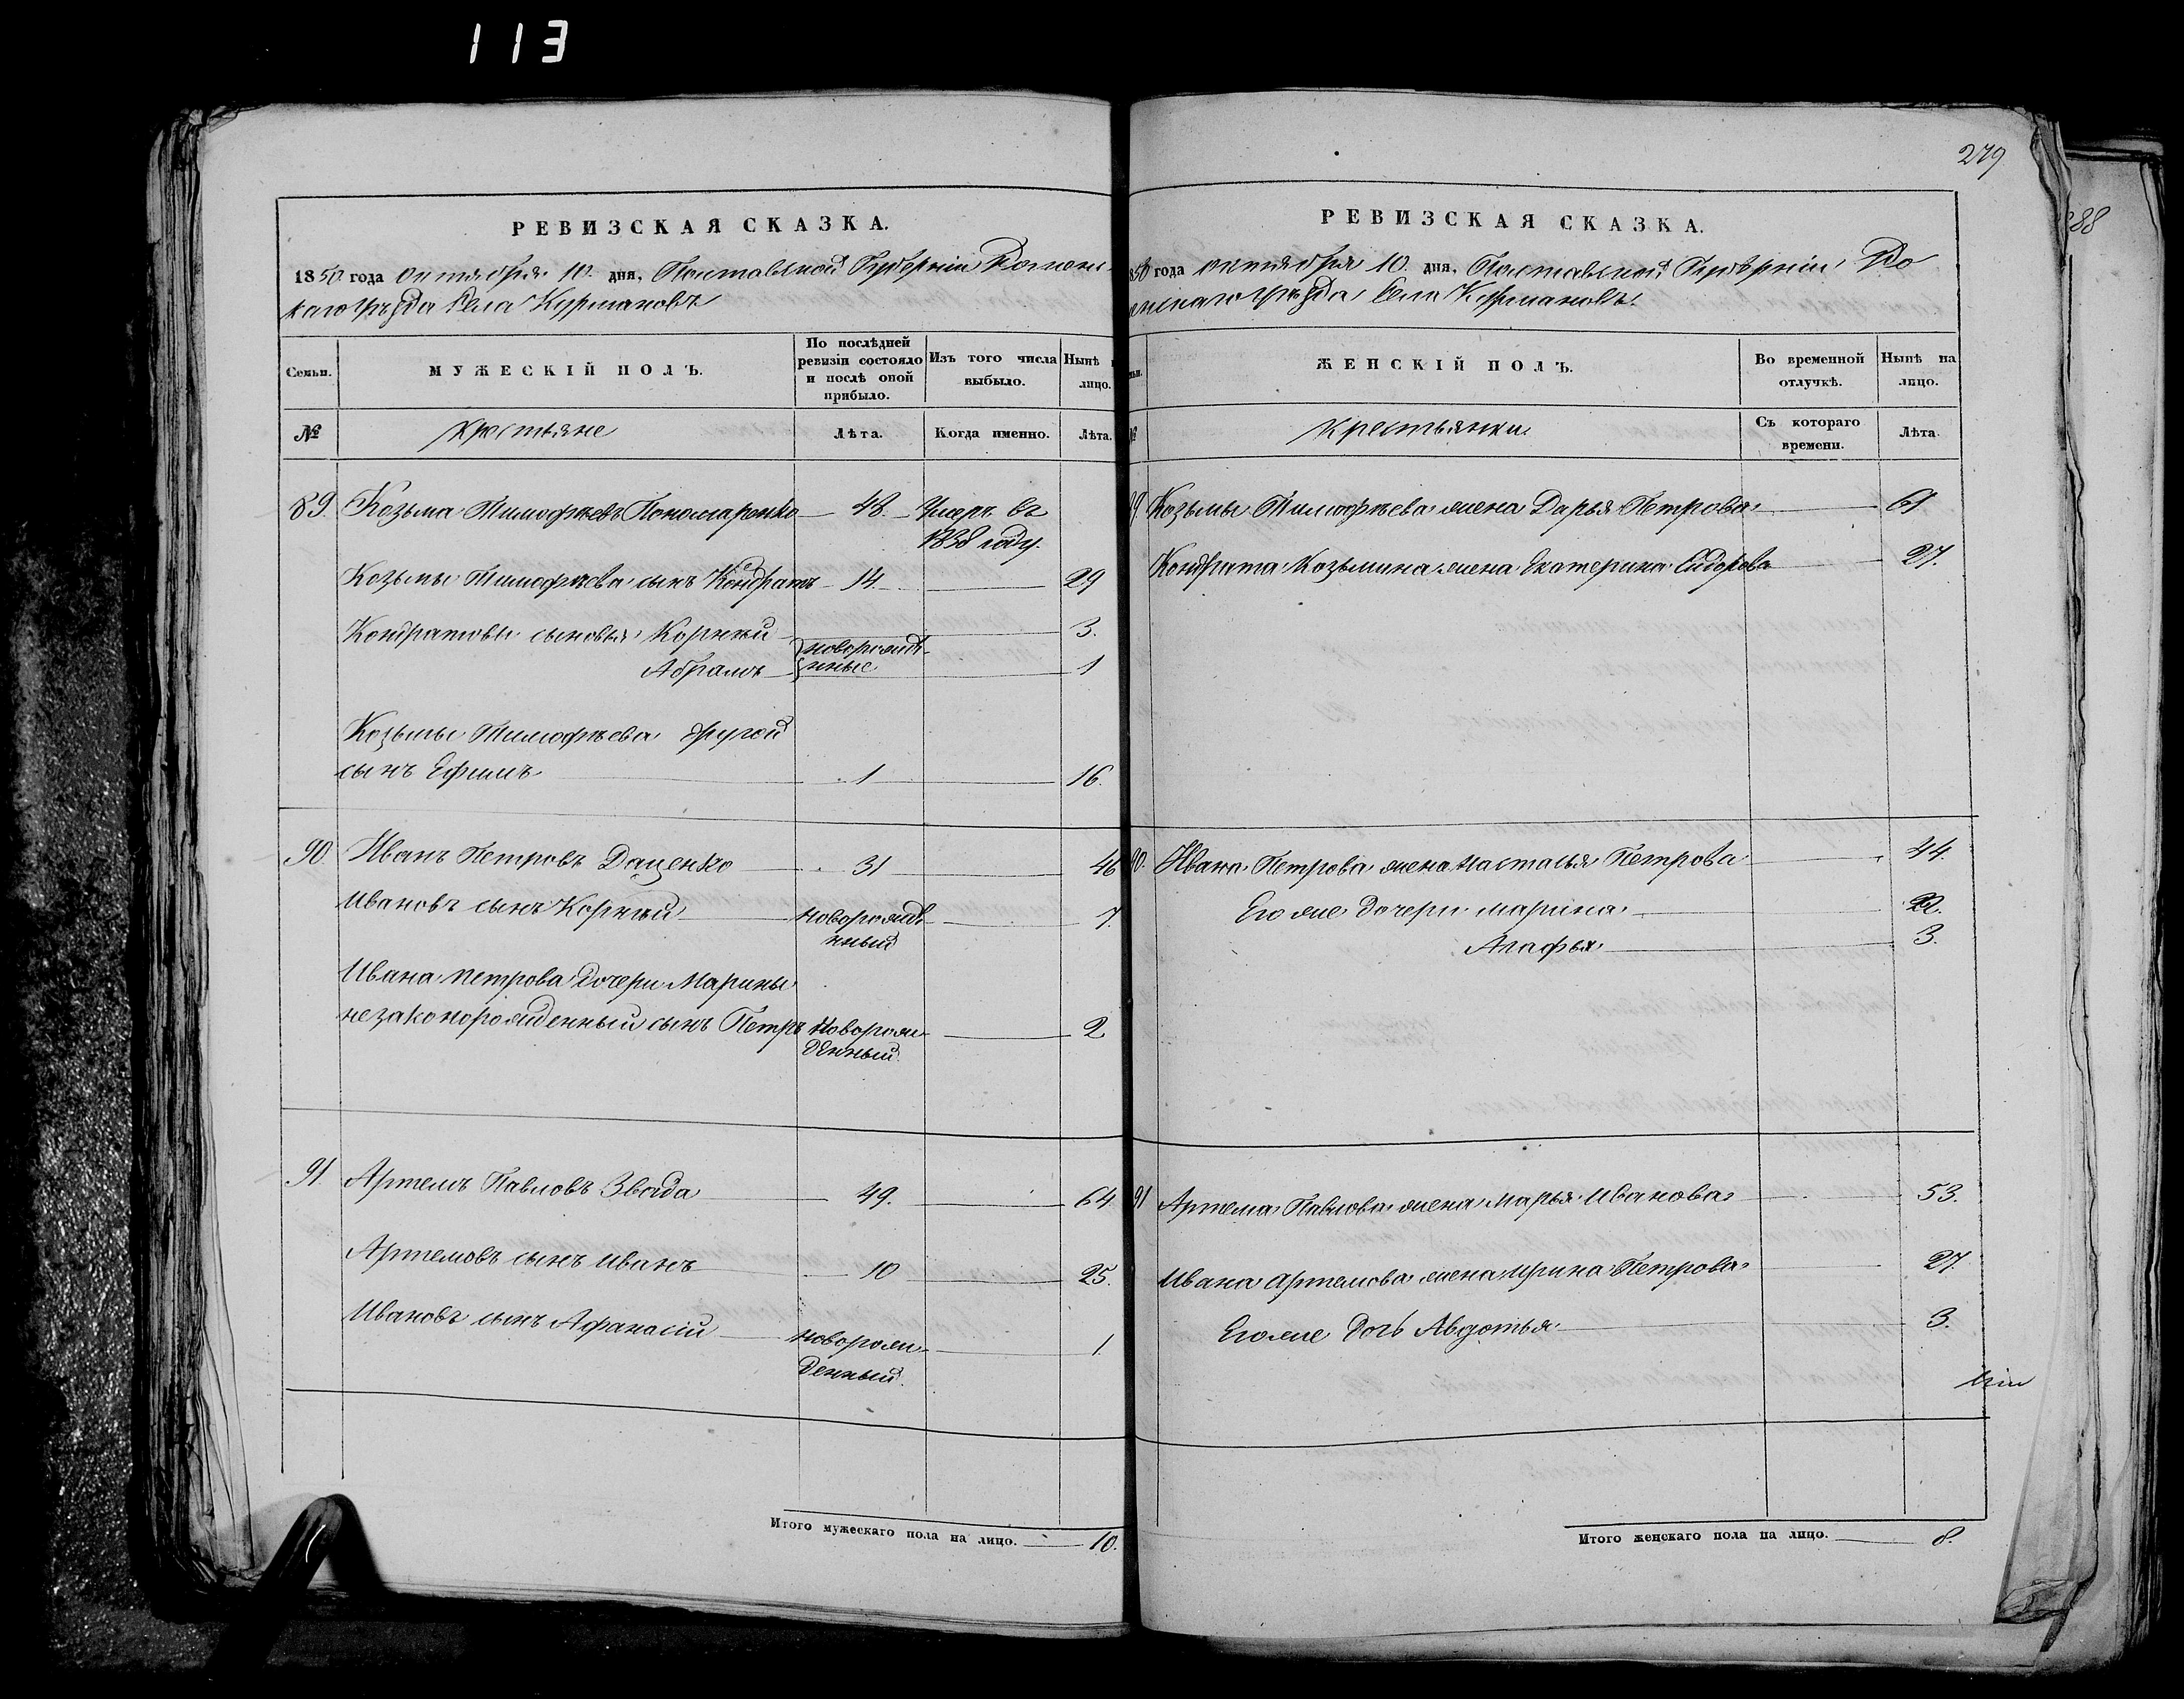 113
РЕВИЗСКАЯ СКАЗКА.
1850 года октября 10. дня, Полтавской Губернiи Роменс-
каго Уѣзда Села Курмановъ
Семьи.
МУЖЕСКIЙ ПОЛЪ.
По послѣдней ревизiи состояло и послѣ оной прибыло.
Изъ того числа выбыло.
Нынѣ
лицо.
№
Крестьяне
Лѣта.
Когда именно.
Лѣта.
89. Козьма Тимофѣевъ Пономаренко 48. Умеръ въ
1838 году.
Козьмы Тимофѣева сынъ Кондратъ 14. 29
Кондратовы сыновья Корнѣй 3.
новорожд-
Абрамъ нные 1
Козьмы Тимофѣева другой
сынъ Ефимъ 1 16.
90. Иванъ Петровъ Даценко 31 46
Ивановъ сынъ Корнѣй новорожде- 7.
нный
Ивана Петрова дочери Марины
незаконорожденный сынъ Петръ Новорож- 2
денный.
91. Артемъ Павловъ Звада 49. 64
Артемовъ сынъ Иванъ 10 25.
Ивановъ сынъ Афанасiй новорож- 1.
денный.
Итого мужескаго пола на лицо. 10.
279
РЕВИЗСКАЯ СКАЗКА.
850 года октября 10. дня, Полтавской Губернiи Ро
менскаго Уѣзда Села Курмановъ.
ЖЕНСКIЙ ПОЛЪ.
Во временной отлучкѣ.
Нынѣ на лицо.
Крестьянки
Съ котораго времени.
Лѣта.
89. Козьмы Тимофѣева жена Дарья Петрова 61
Кондрата Козьмина жена Екатерина Сидорова 27.
90. Ивана Петрова жена Настасья Петрова 44.
Его же дочери Марина 22.
Агафья 3.
91 Артема Павлова жена Марья Иванова 53.
Ивана Артемова жена Ирина Петрова 27.
Его же дочь Авдотья 3.
Итого женскаго пола на лицо. 8.
288